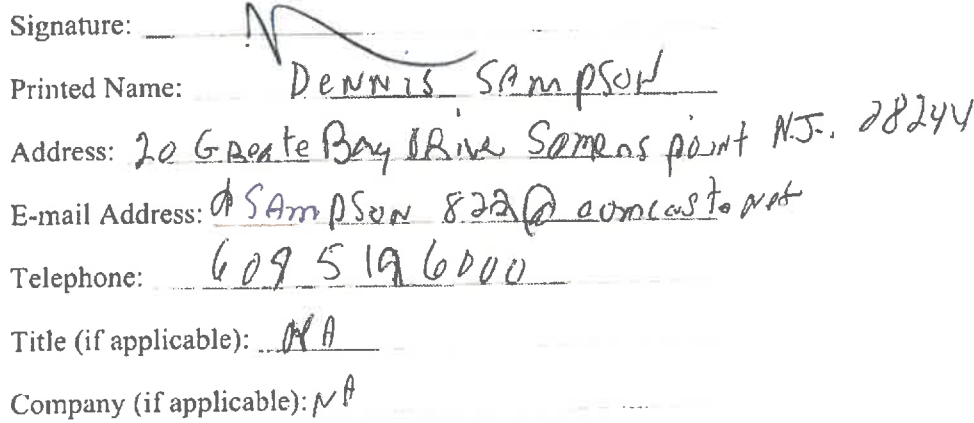 Signature:
Printed Name: Dennis Sampson
Address: 20 Greate Bay Drive Somers point N.J. 08244
E-mail Address: dSAmpson 822@comcast.net
Telephone: 609 519 6000
Title (if applicable): NA
Company (if applicable): NA